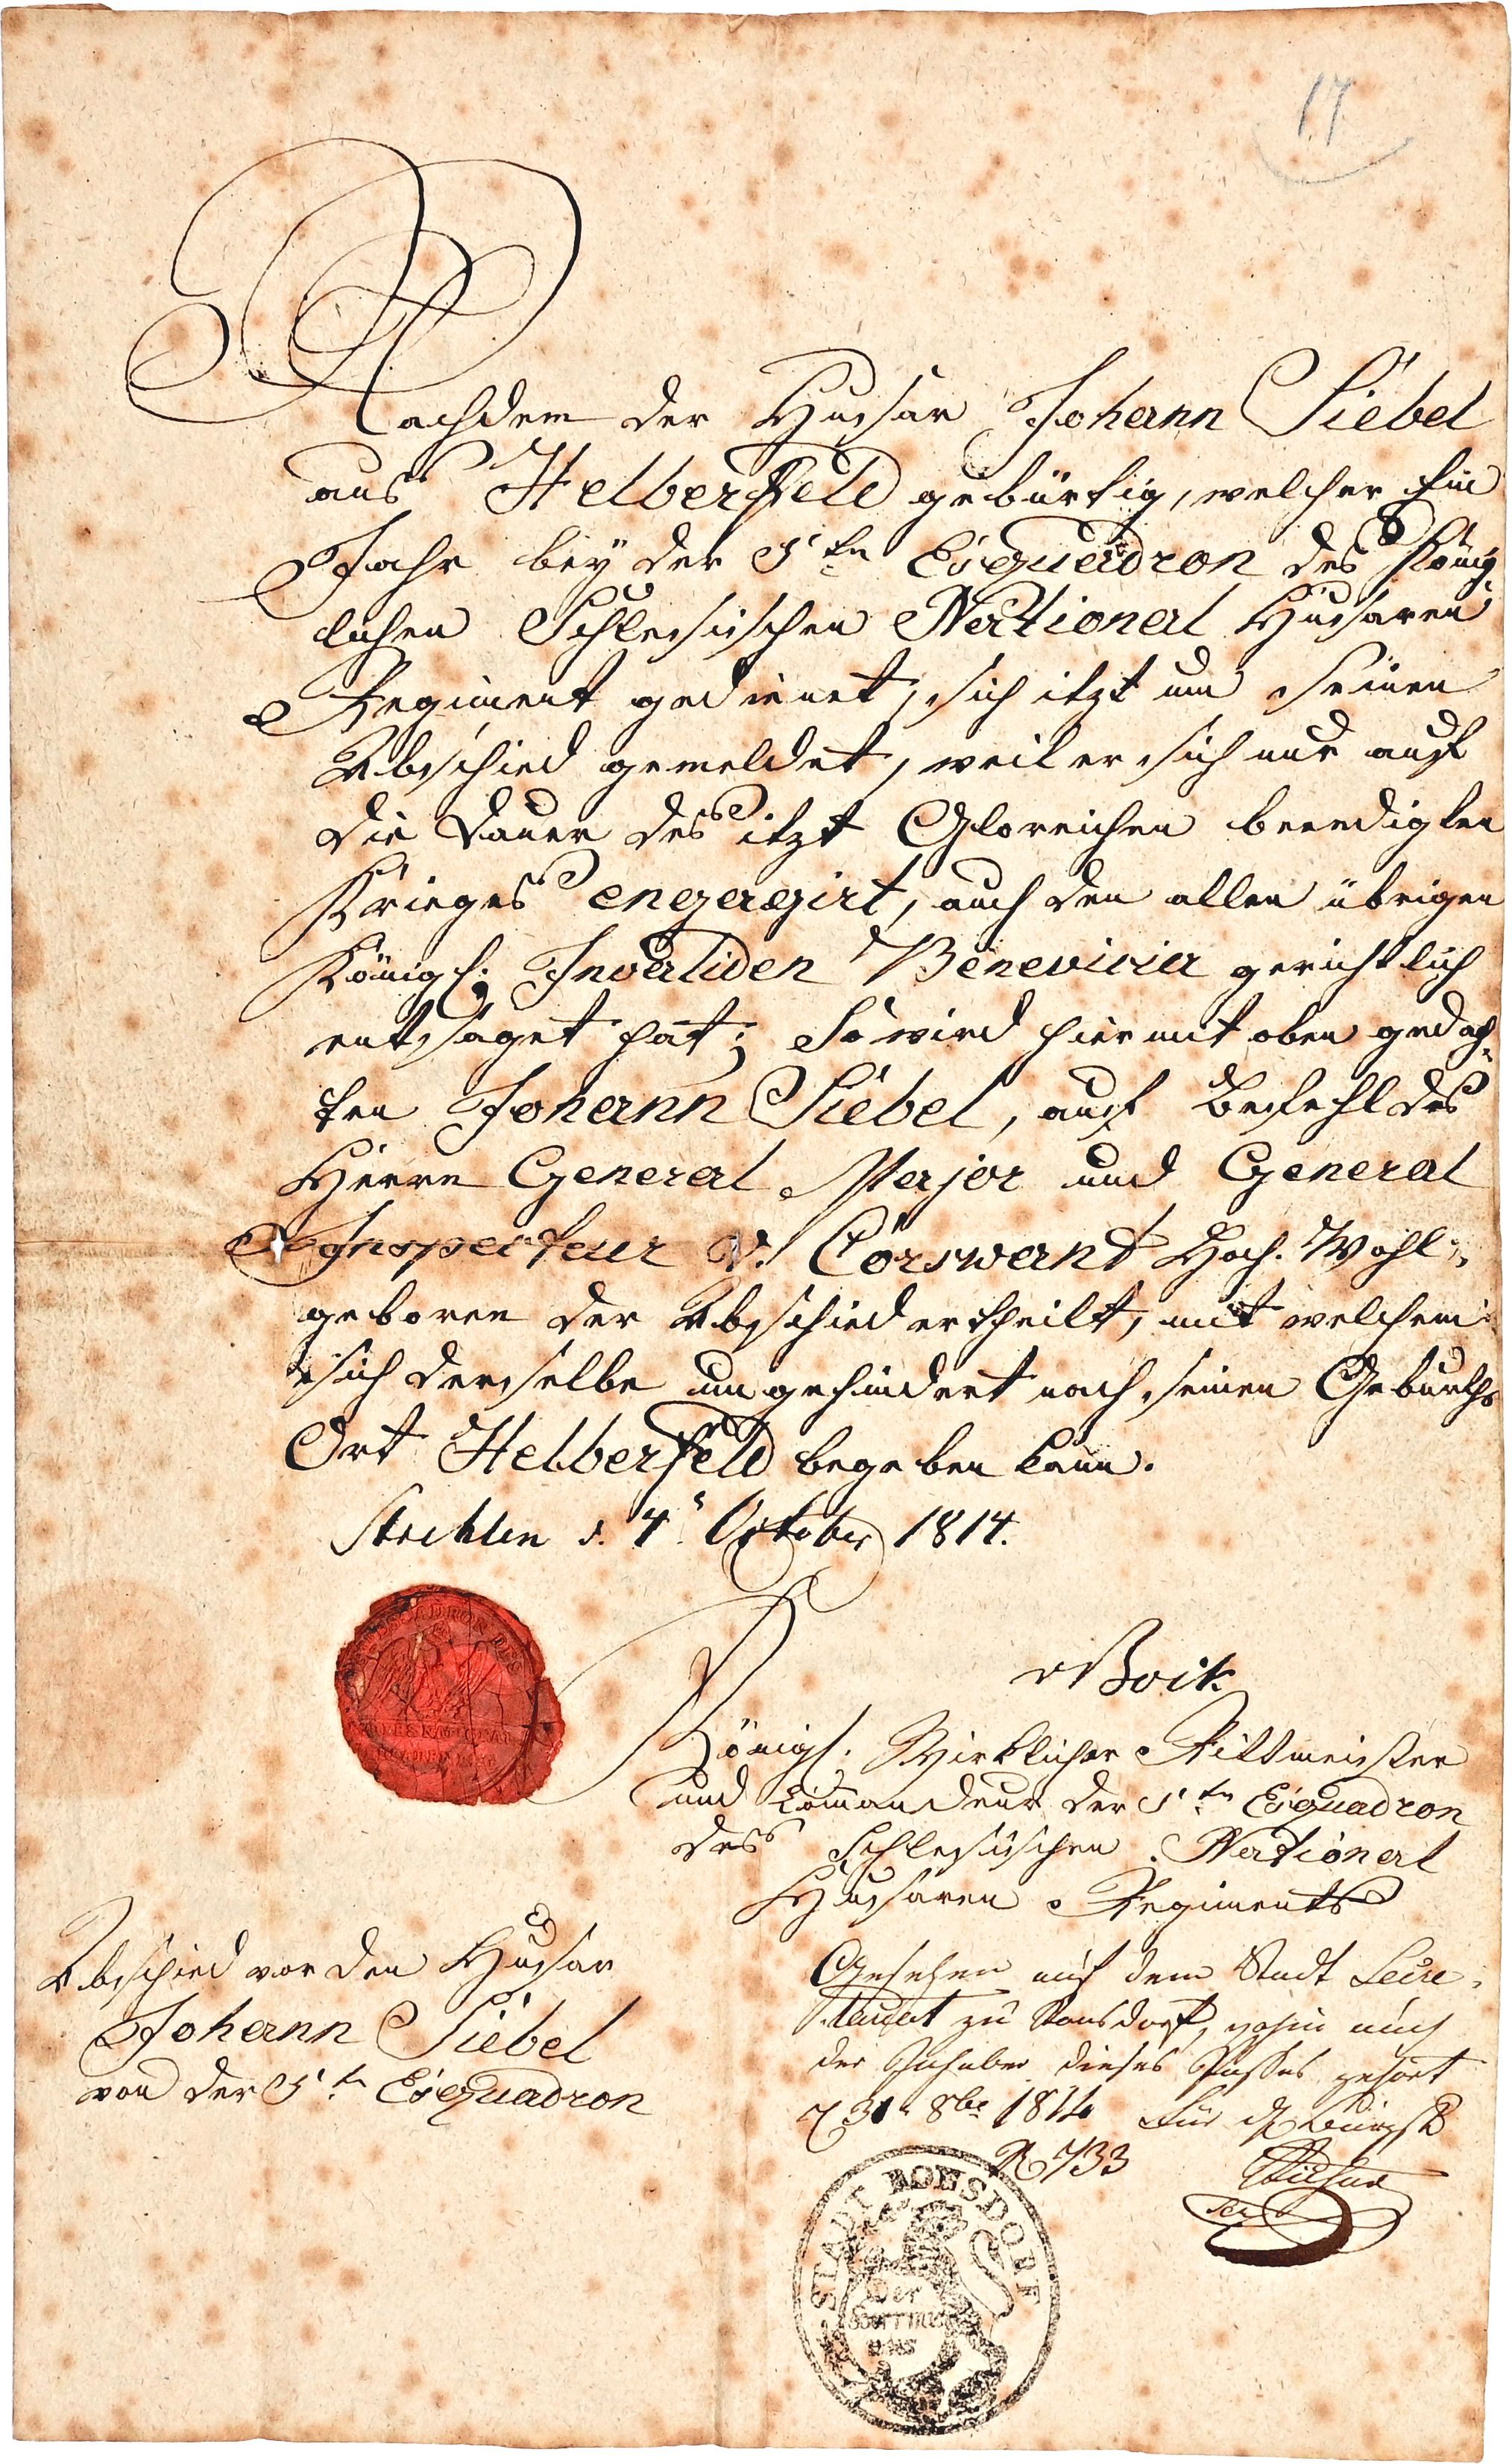 17
Nachdem der Husar Johann Siebel
aus Helberfeld gebürtig, welcher Ein
Jahr bey der 5tn Esquadron des König
lichen Schlesischen National Husaren
Regiment gedienet, sich itzt um seinen
Abschied gemeldet, weil er sich nur auf
die Dauer des itzt Gloreichen beendigten
Krieges engagirt, auch den allen übrigen
Königl: Invaliden Benevicia gerichtlich
entsaget hat; So wird hiermit oben gedach-
ten Johann Siebel, auf Befehl des
Herrn General Major und General
Inspecteur v. Corswant Hoch. Wohl-
geboren der Abschied ertheilt, mit welchem
sich derselbe ungehindert nach seinen Geburths
Ort Helberfeld begeben kann.
Strehlen d. 4t October 1814.
vBoik
Königl. Wirklicher Rittmeister
und Commandeur der 5tn Esquadron
des Schlesischen National
Husaren Regiments
Abschied vor den Husar
Johann Siebel
von der 5tn Esquadron
Gesehen auf dem Stadt Secre-
tariat zu Ronsdorf, wohin auch
der Inhaber dieses Passes gehört
31 8br 1814 Für d
N 733
STADT RONSDORF
Der